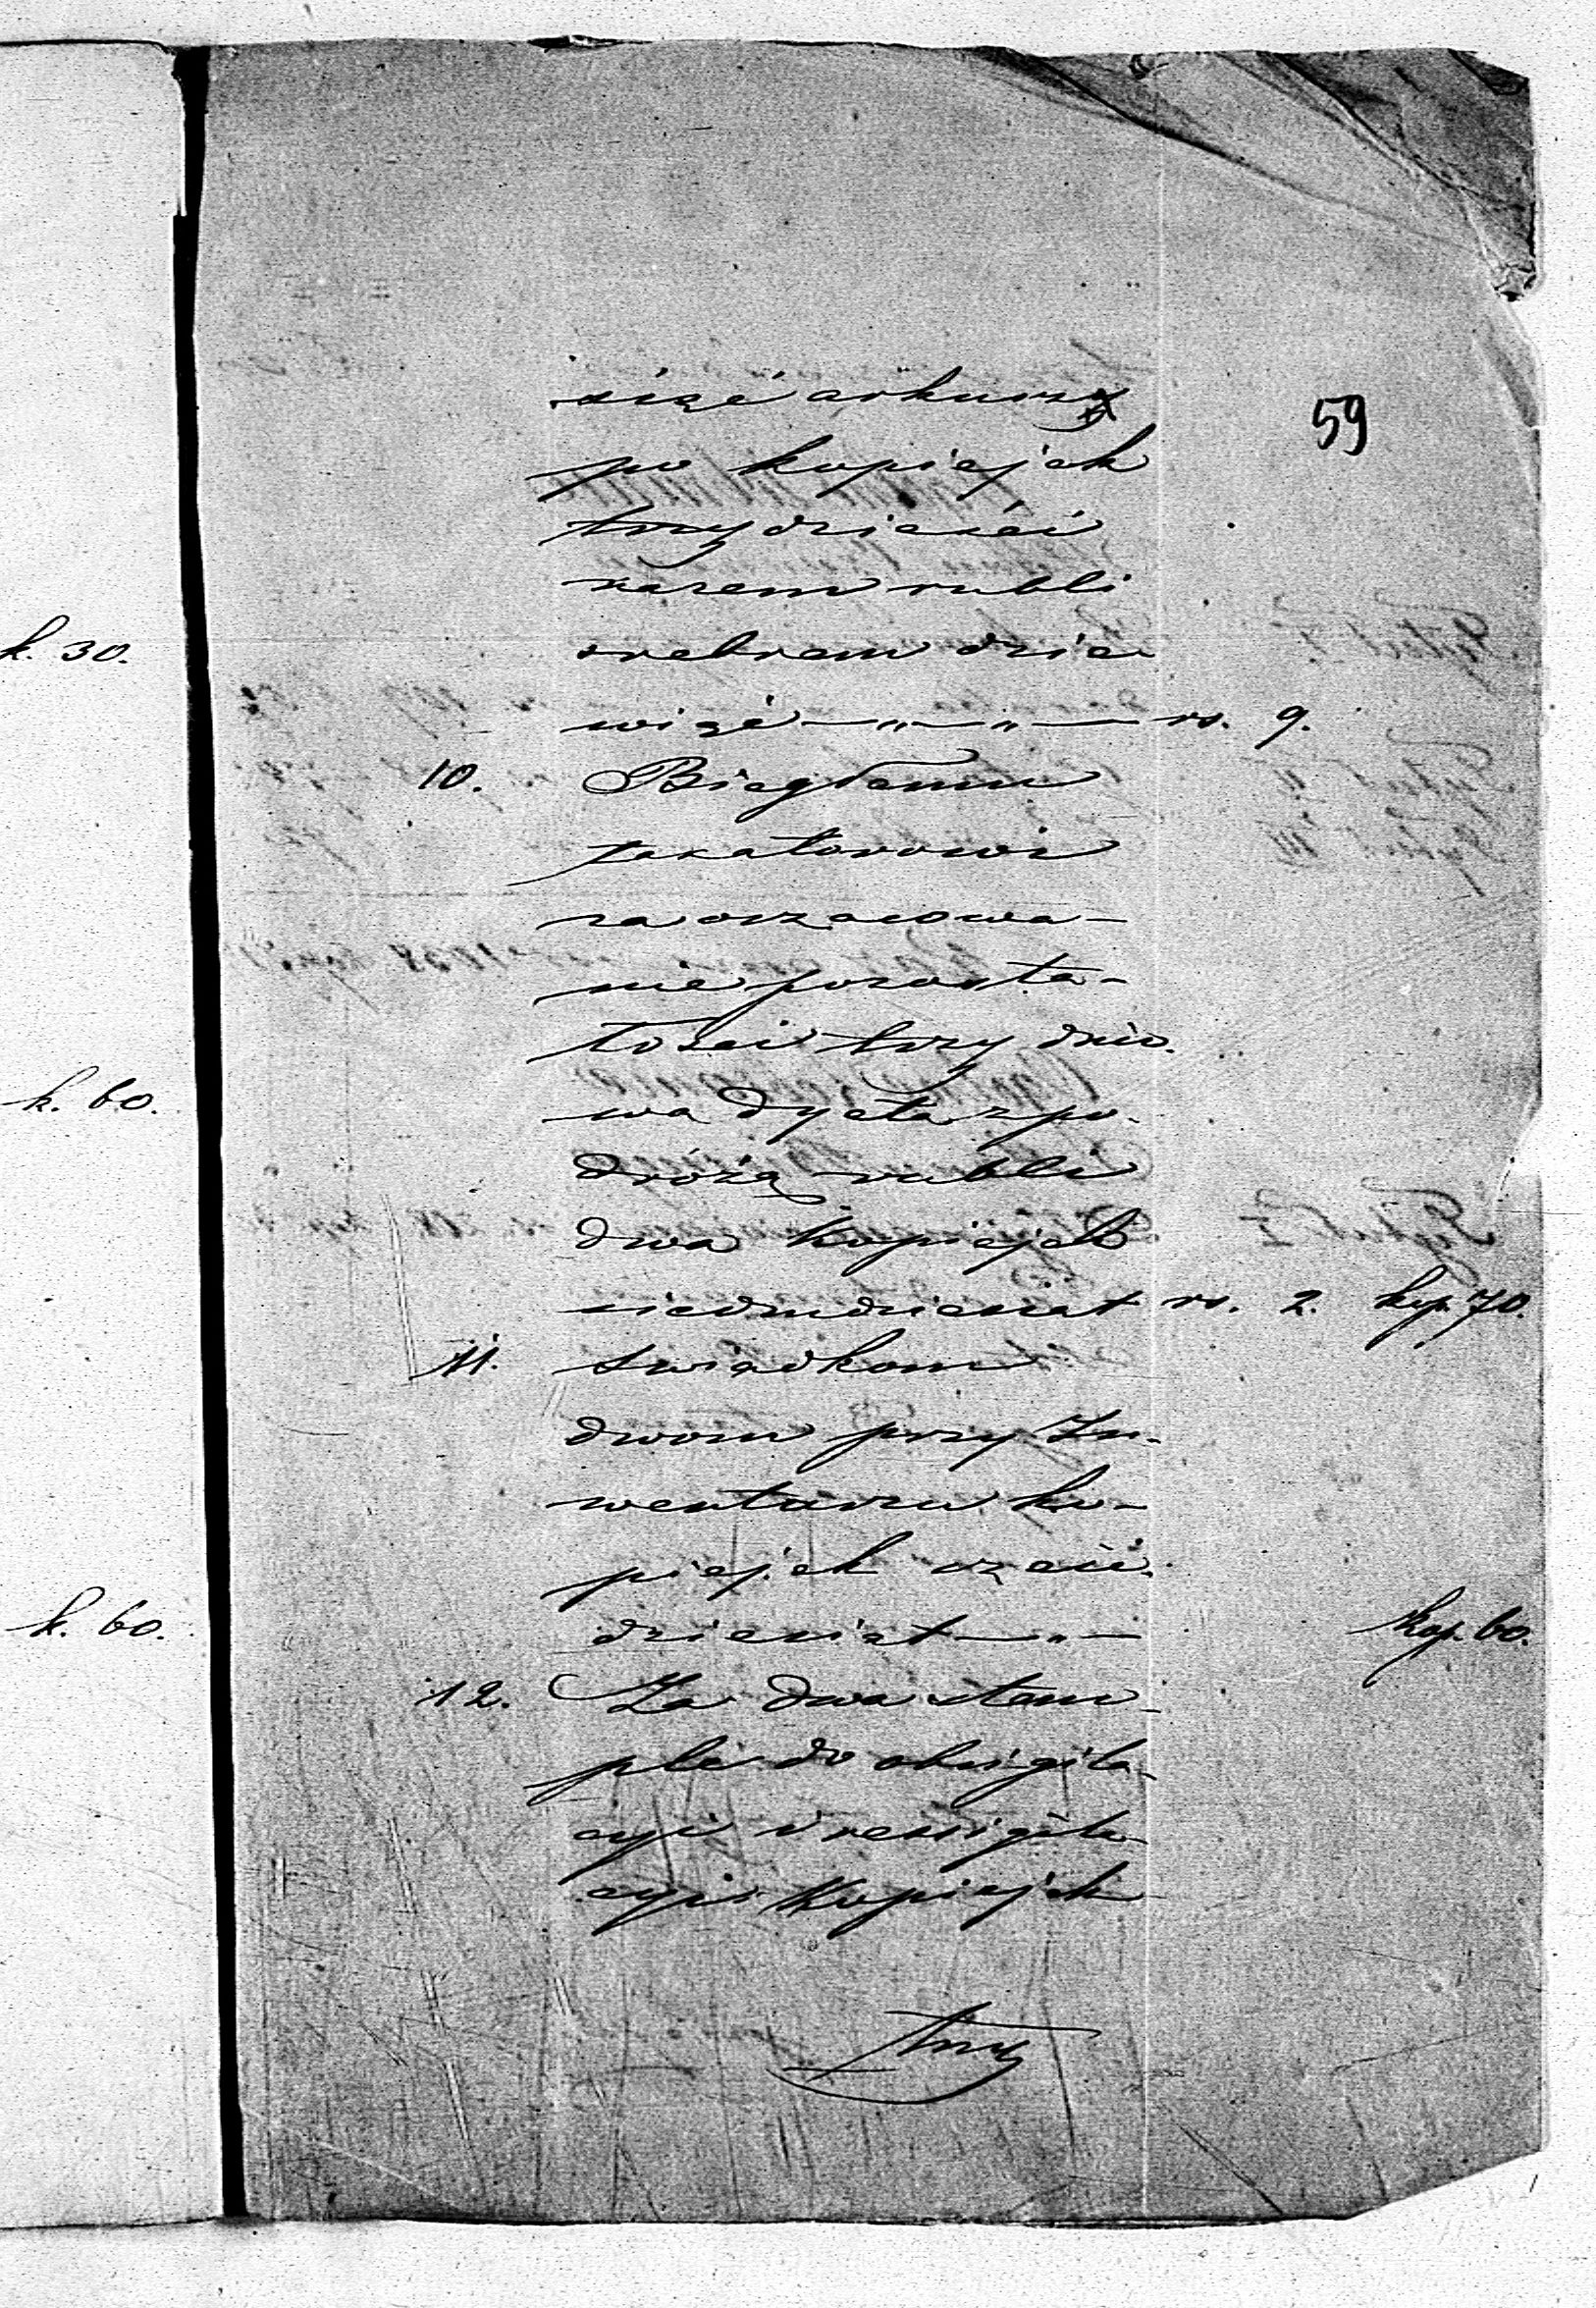 59
sięć arkuszy
po kopiejek
trzydzieści
razem rubli
srebrem dzie-
więć — „ — „ — rs. 9.
10. Biegłemu
taxatorowi
za oszacowa-
nie pozosta-
łości trzy dnio-
wa dyeta z po-
dróżą rubli
dwa kopiejek
siedmdziesiąt rs. 2. kop. 70.
11. świadkom
dwom przy In-
wentarzu ko-
piejek sześć-
dziesiąt — „ — kop. 60.
12. Za dwa stem-
ple do obsigila-
cyi i resigila-
cyi kopiejek
trzy
k. 30.
k. 60.
k. 60.